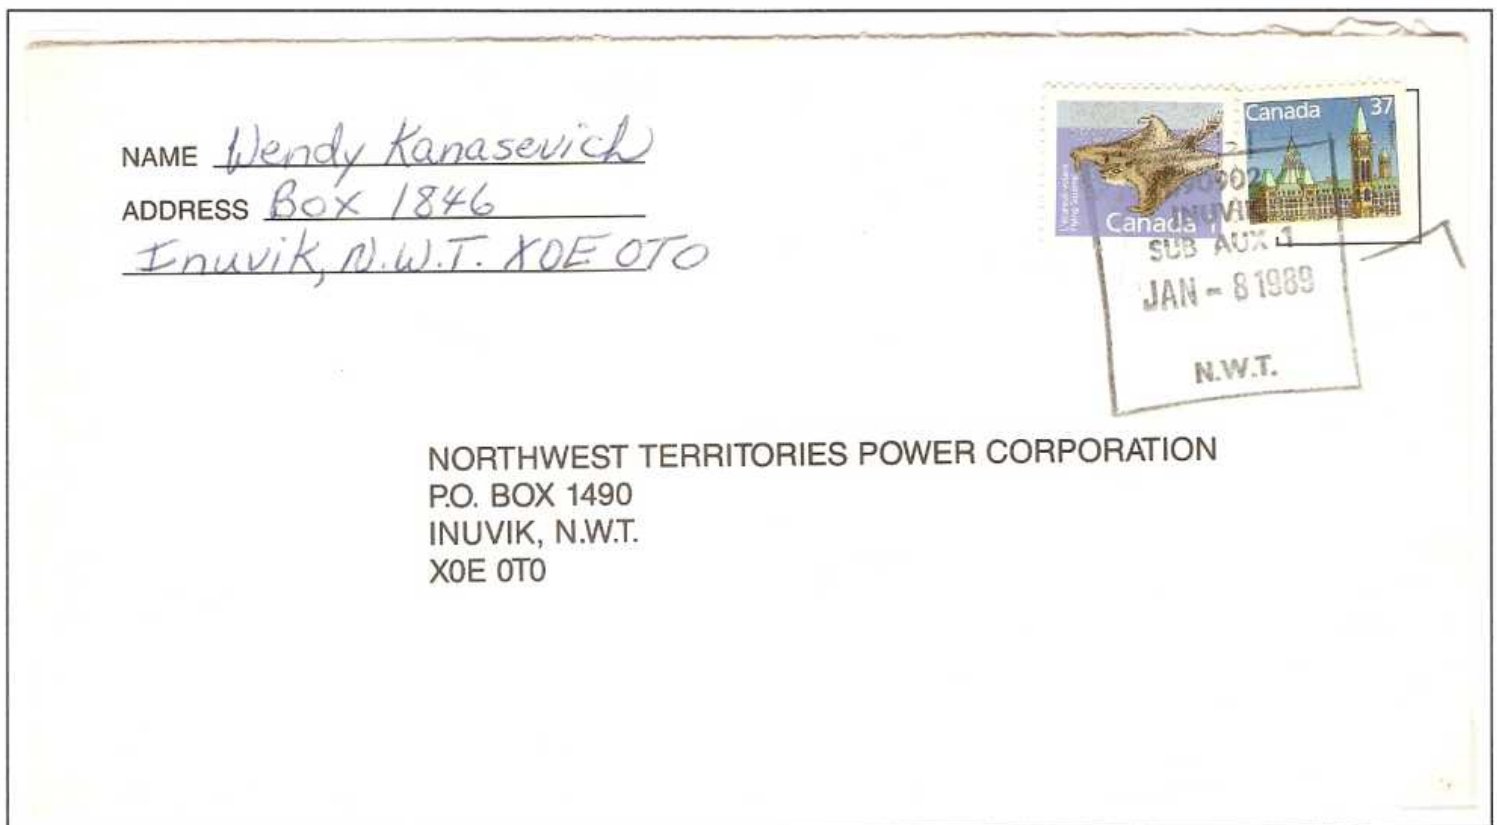 NAME Wendy Kanasevich
ADDRESS Box 1846
Inuvik, N.W.T. X0E 0T0
Canada 1
Canada 37
INUVIK
SUB AUX 1
JAN - 8 1989
N.W.T.
NORTHWEST TERRITORIES POWER CORPORATION
P.O. BOX 1490
INUVIK, N.W.T.
X0E 0T0